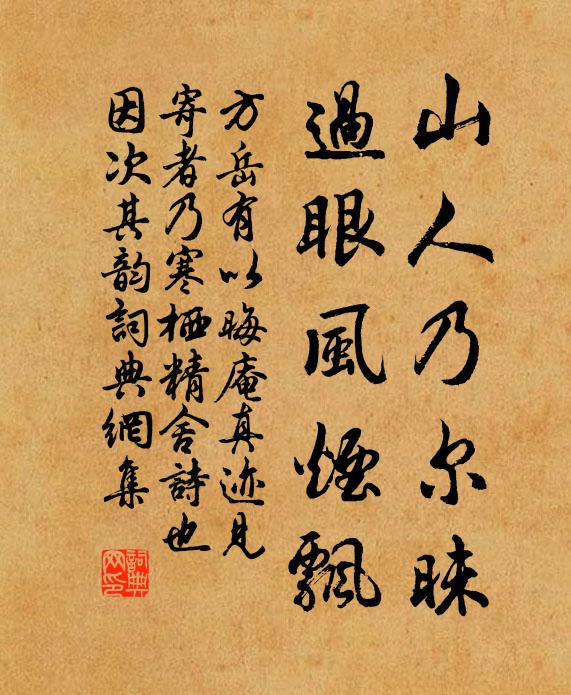 山人乃尔昧
過眼風煙飄
方岳有以晦庵真迹見
寄者乃寒栖精舍詩也
因次其韵詞典網集
詞典
网印